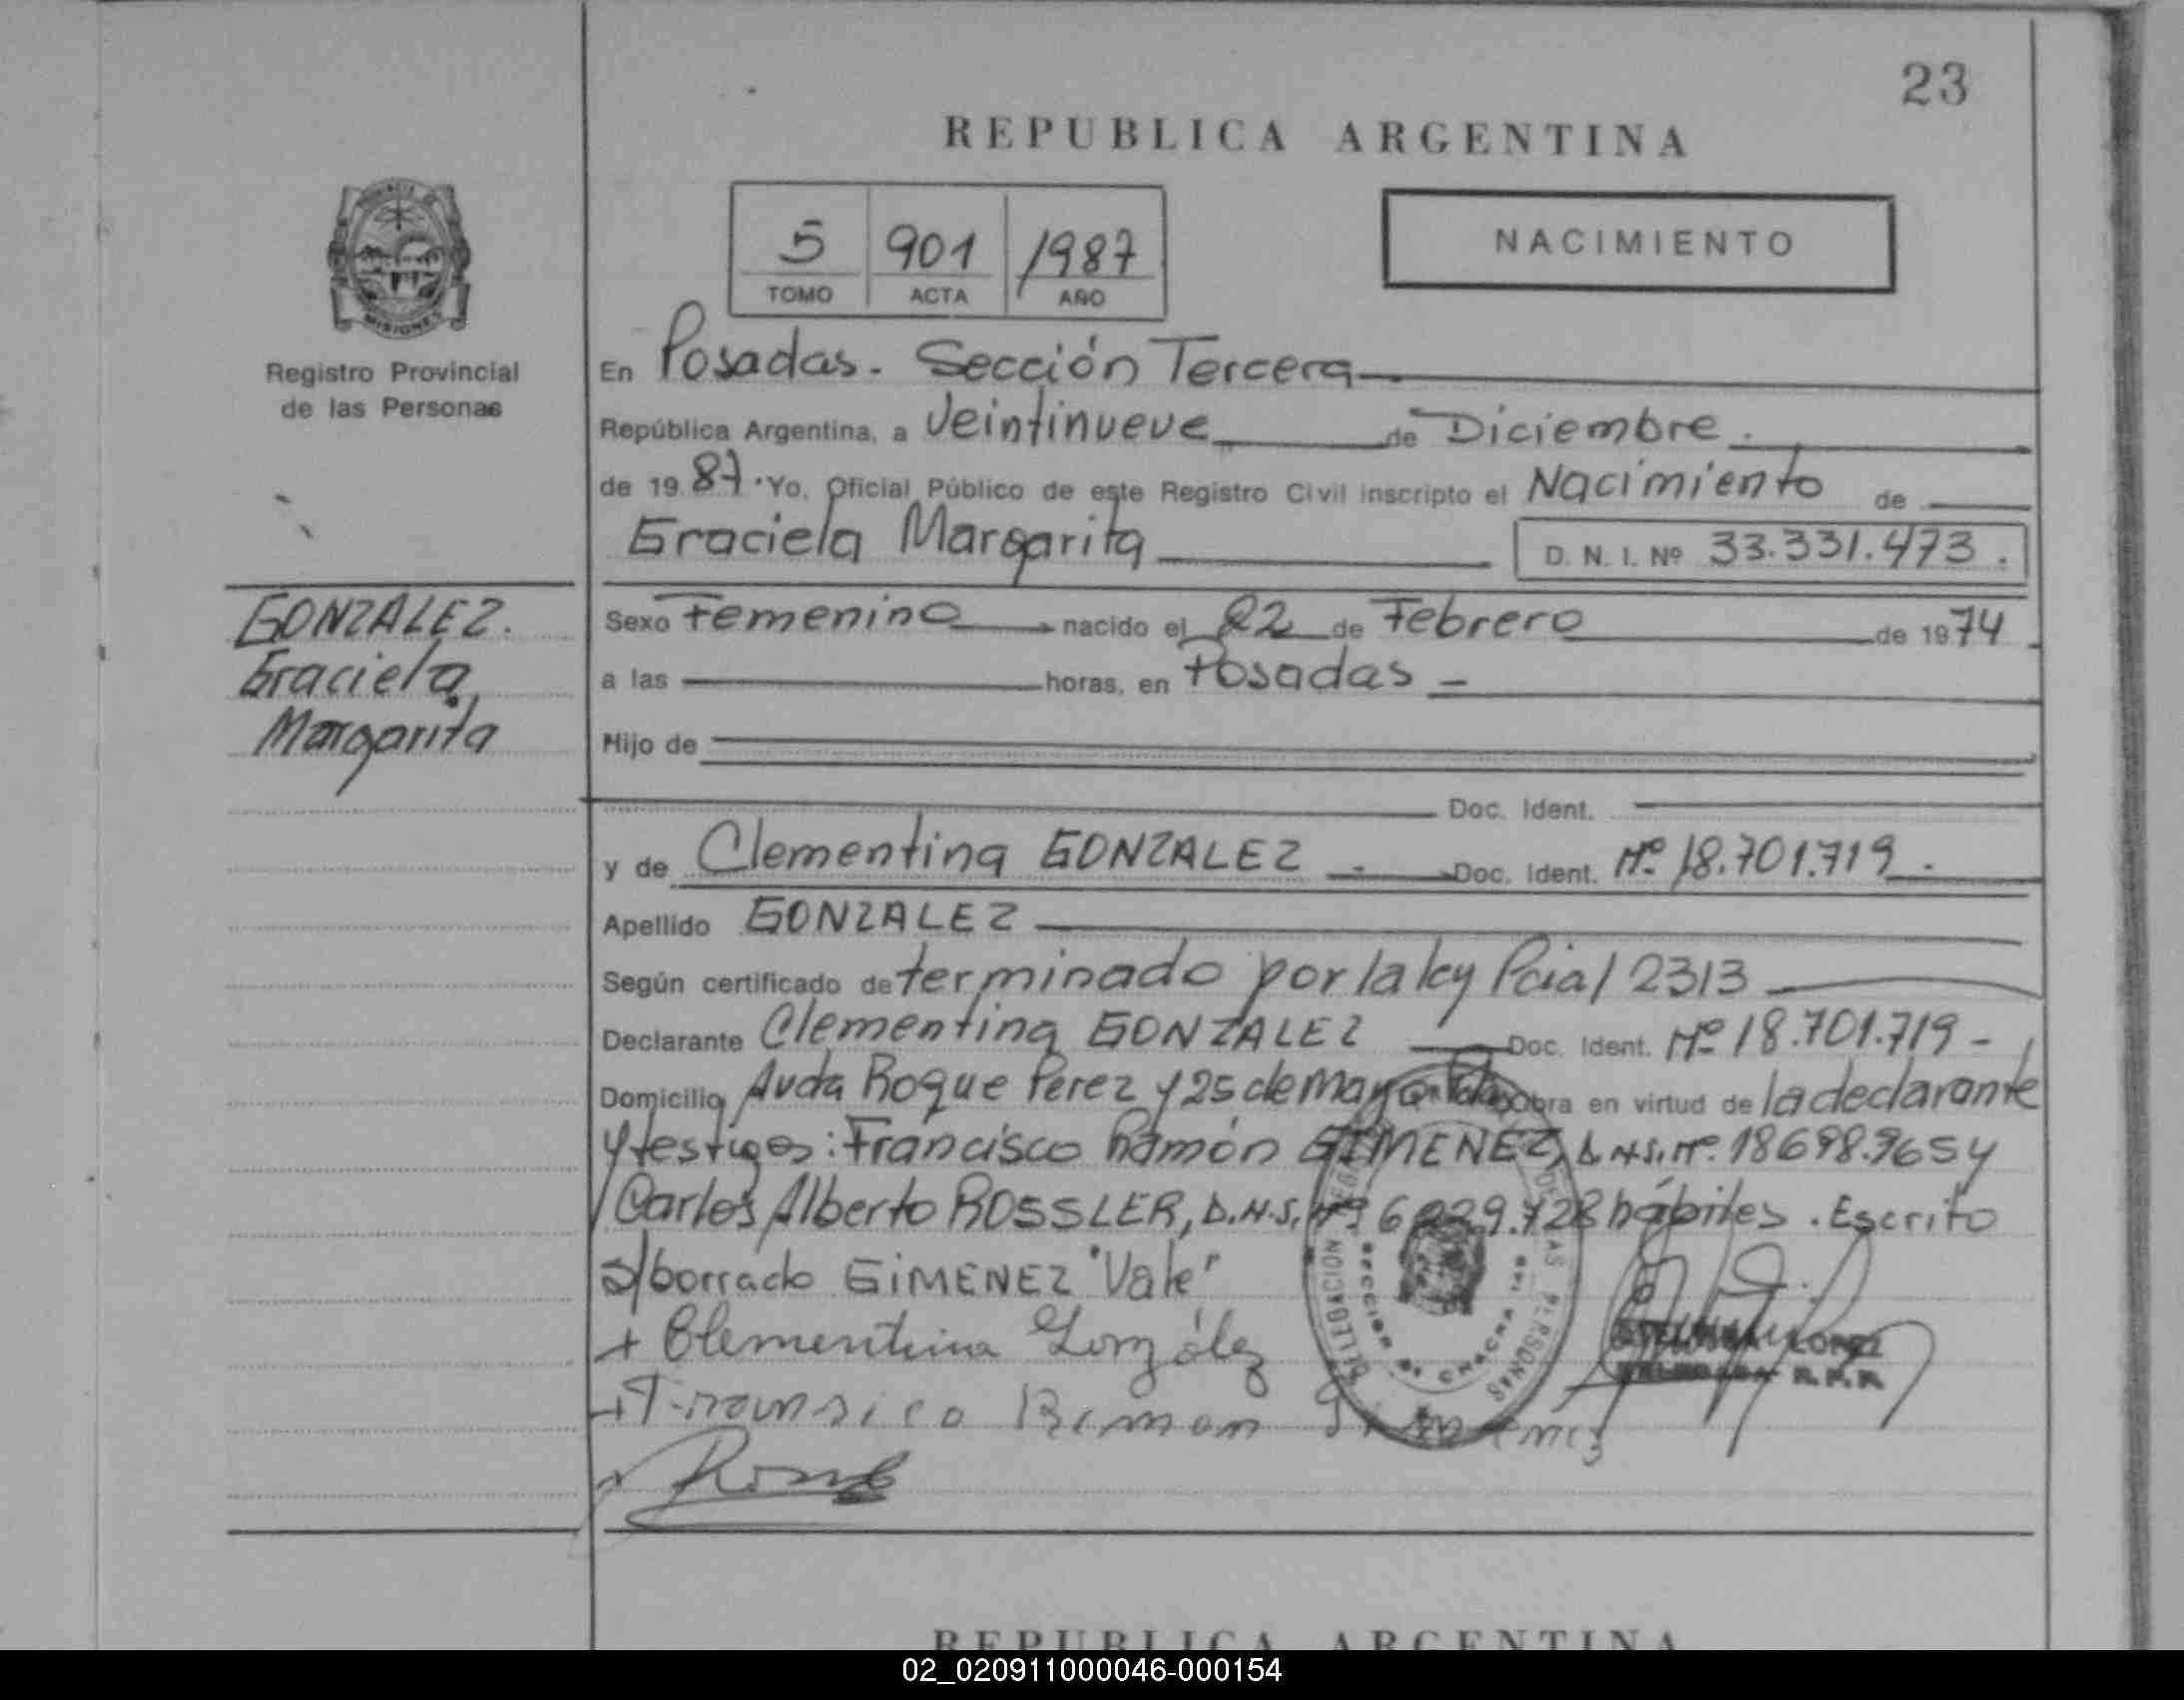 23
REPUBLICA ARGENTINA
5 901 1987
TOMO ACTA AÑO
NACIMIENTO
MISIONES
Registro Provincial
de las Personas
GONZALEZ.
Graciela
Margarita
En Posadas. Sección Tercera
República Argentina, a Veintinueve de Diciembre.
de 19 87. Yo, Oficial Público de este Registro Civil inscripto el Nacimiento de
Graciela Margarita
D. N. I. Nº 33.331.473.
Sexo Femenino nacido el 22 de Febrero de 1974
a las horas, en Posadas
Hijo de
Doc. Ident.
y de Clementina GONZALEZ Doc. Ident. Nº 18.701.719.
Apellido GONZALEZ
Según certificado determinado por la ley Pcial 2313
Declarante Clementina GONZALEZ Doc. Ident. Nº 18.701.719-
Domicilio Avda Roque Perez y 25 de Mayo Obra en virtud de la declarante
y testigos: Francisco Ramón GIMENEZ, D.N.I. Nº. 18698.965 y
Carlos Alberto ROSSLER, D.N.I. Nº 728 hábiles. Escrito
s/borrado GIMENEZ "Vale"
+ Clementina González
LOPEZ
R. P. P.
DELEGACION DE LAS PERSONAS
SECCION CHACRA
REPUBLICA ARGENTINA
02_020911000046-000154